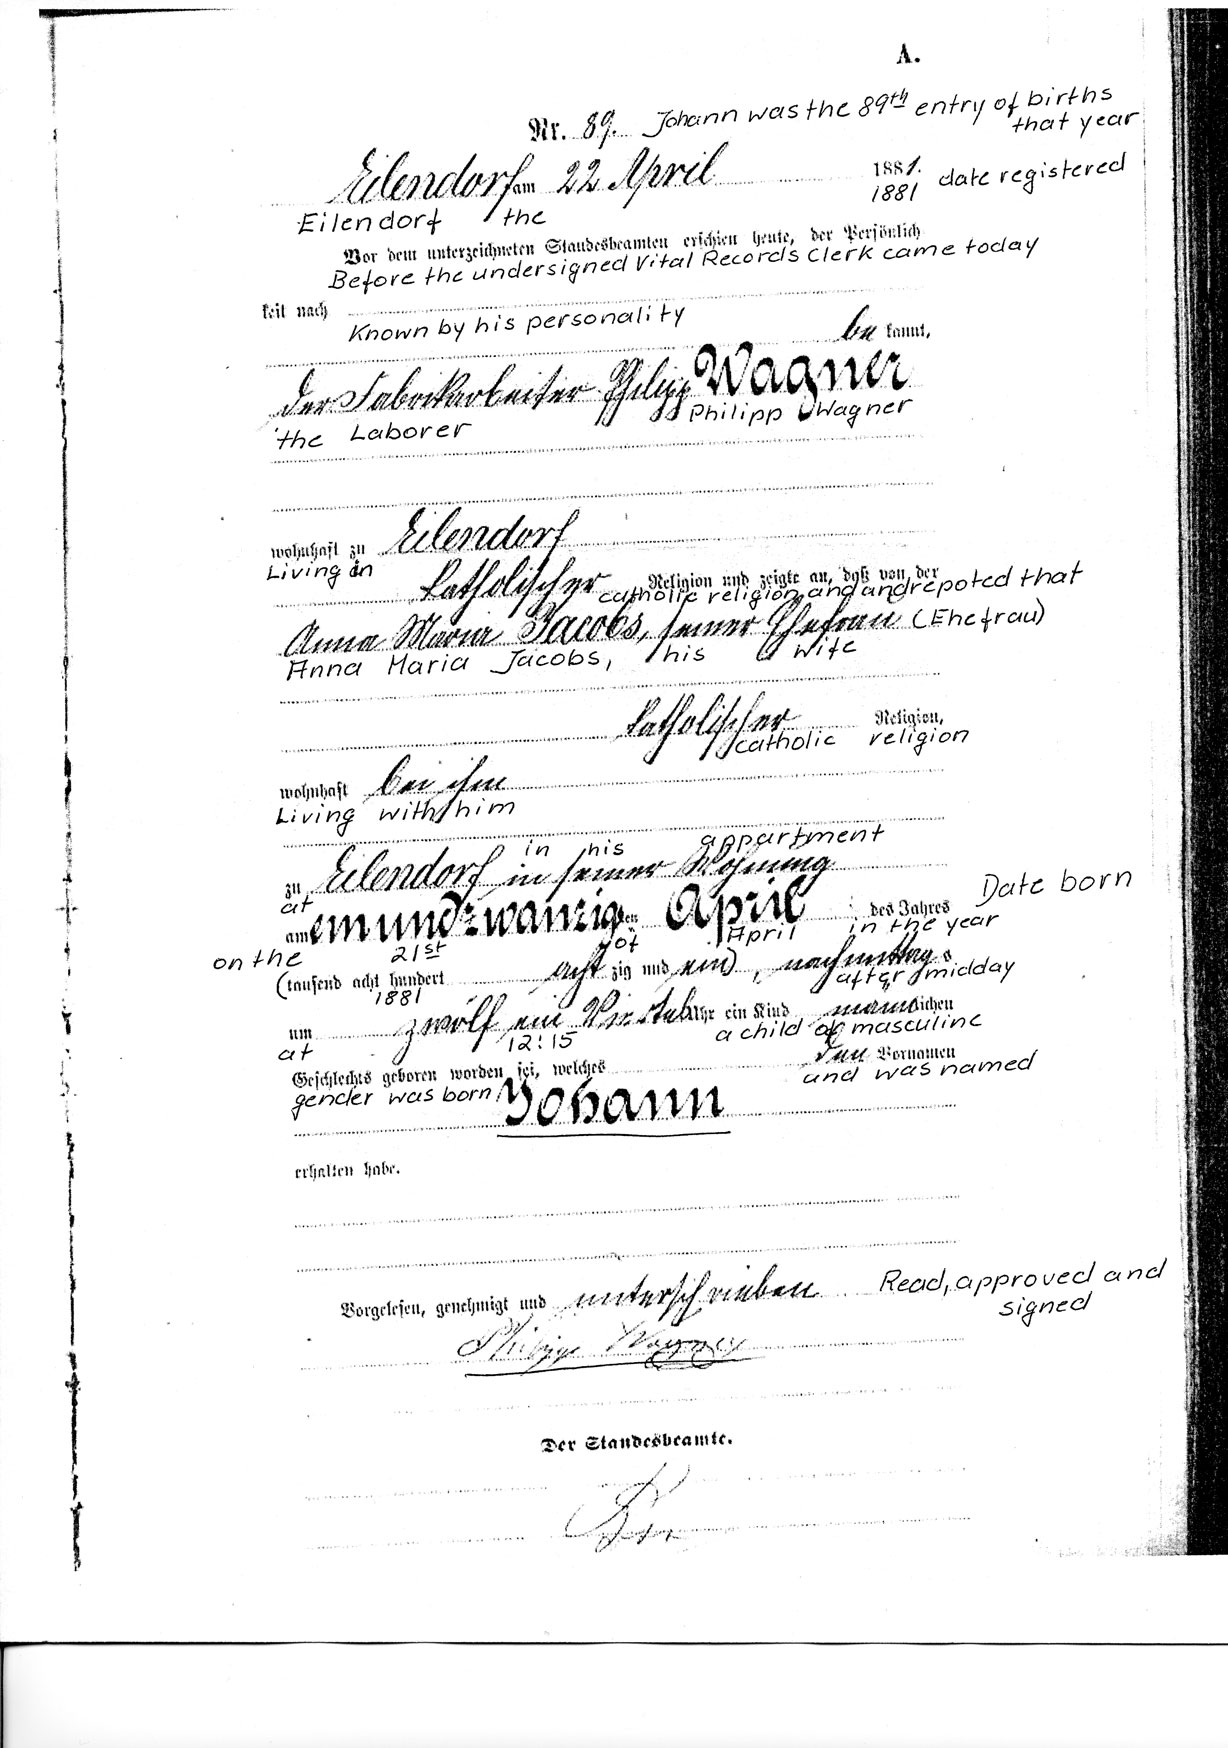 A.
Nr. 89. Johann was the 89th entry of births
that year
Eilendorf am 22 April 1881.
1881 date registered
Eilendorf the
Vor dem unterzeichneten Standesbeamten erschien heute, der Persönlich
Before the undersigned Vital Records Clerk came today
keit nach
Known by his personality
be kannt,
der Fabrikarbeiter Philipp Wagner
the Laborer Philipp Wagner
wohnhaft zu Eilendorf
Living in
katholischer Religion und zeigte an, daß von der
catholic religion and and repoted that
Anna Maria Jacobs, seiner Ehefrau (Ehefrau)
Anna Maria Jacobs, his wife
katholischer Religion,
catholic religion
wohnhaft bei ihm
Living with him
in his appartment
zu Eilendorf in seiner Wohnung
at
Date born
am einundzwanzigsten April des Jahres
on the 21st of April in the year
tausend acht hundert acht zig und ein, nachmittags
1881 after midday
um zwölf ein Viertel Uhr ein Kind männlichen
at 12:15 a child of masculine
Geschlechts geboren worden sei, welches den Vornamen
gender was born and was named
Johann
erhalten habe.
Vorgelesen, genehmigt und unterschrieben Read, approved and
signed
Philipp Wagner
Der Standesbeamte.